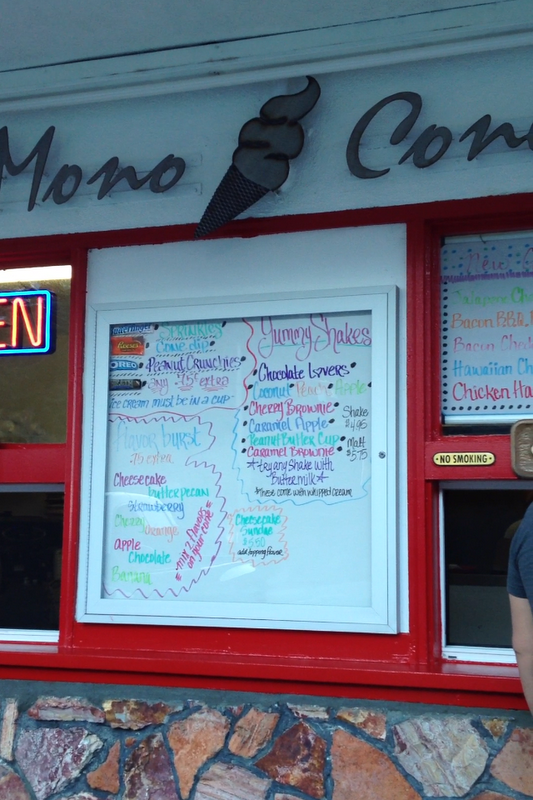 Mono Con
EN
Sprinkles
Cone dip
Reese's
OREO
Peanut Crunchies
any .75¢ extra
ice cream must be in a cup
Flavor burst
.75 extra
Cheesecake
butter pecan
Strawberry
Cherry
Orange
Apple
Chocolate
Banana
*mix 2 flavors
on your cone*
Yummy Shakes
Chocolate Lovers
Coconut Peach Apple
Cherry Brownie
Caramel Apple
Peanut Butter Cup
Caramel Brownie
Shake
$4.95
Malt
$5.75
*try any shake with
Buttermilk*
*These come with whipped cream
Cheesecake
Sundae
$5.50
add topping flavor
New
Jalapeno Ch
Bacon B.B.
Bacon Ch
Hawaiian Ch
Chicken Ha
NO SMOKING